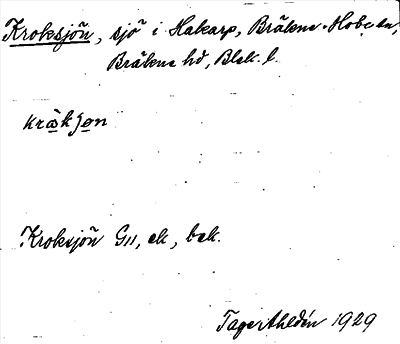 Kroksjön, sjö i Hakarp, Bräkne-Hoby sn,
Bräkne hd, Blek. l.
Kroksjön G11, ek, bek.
Tage Ahldén 1929